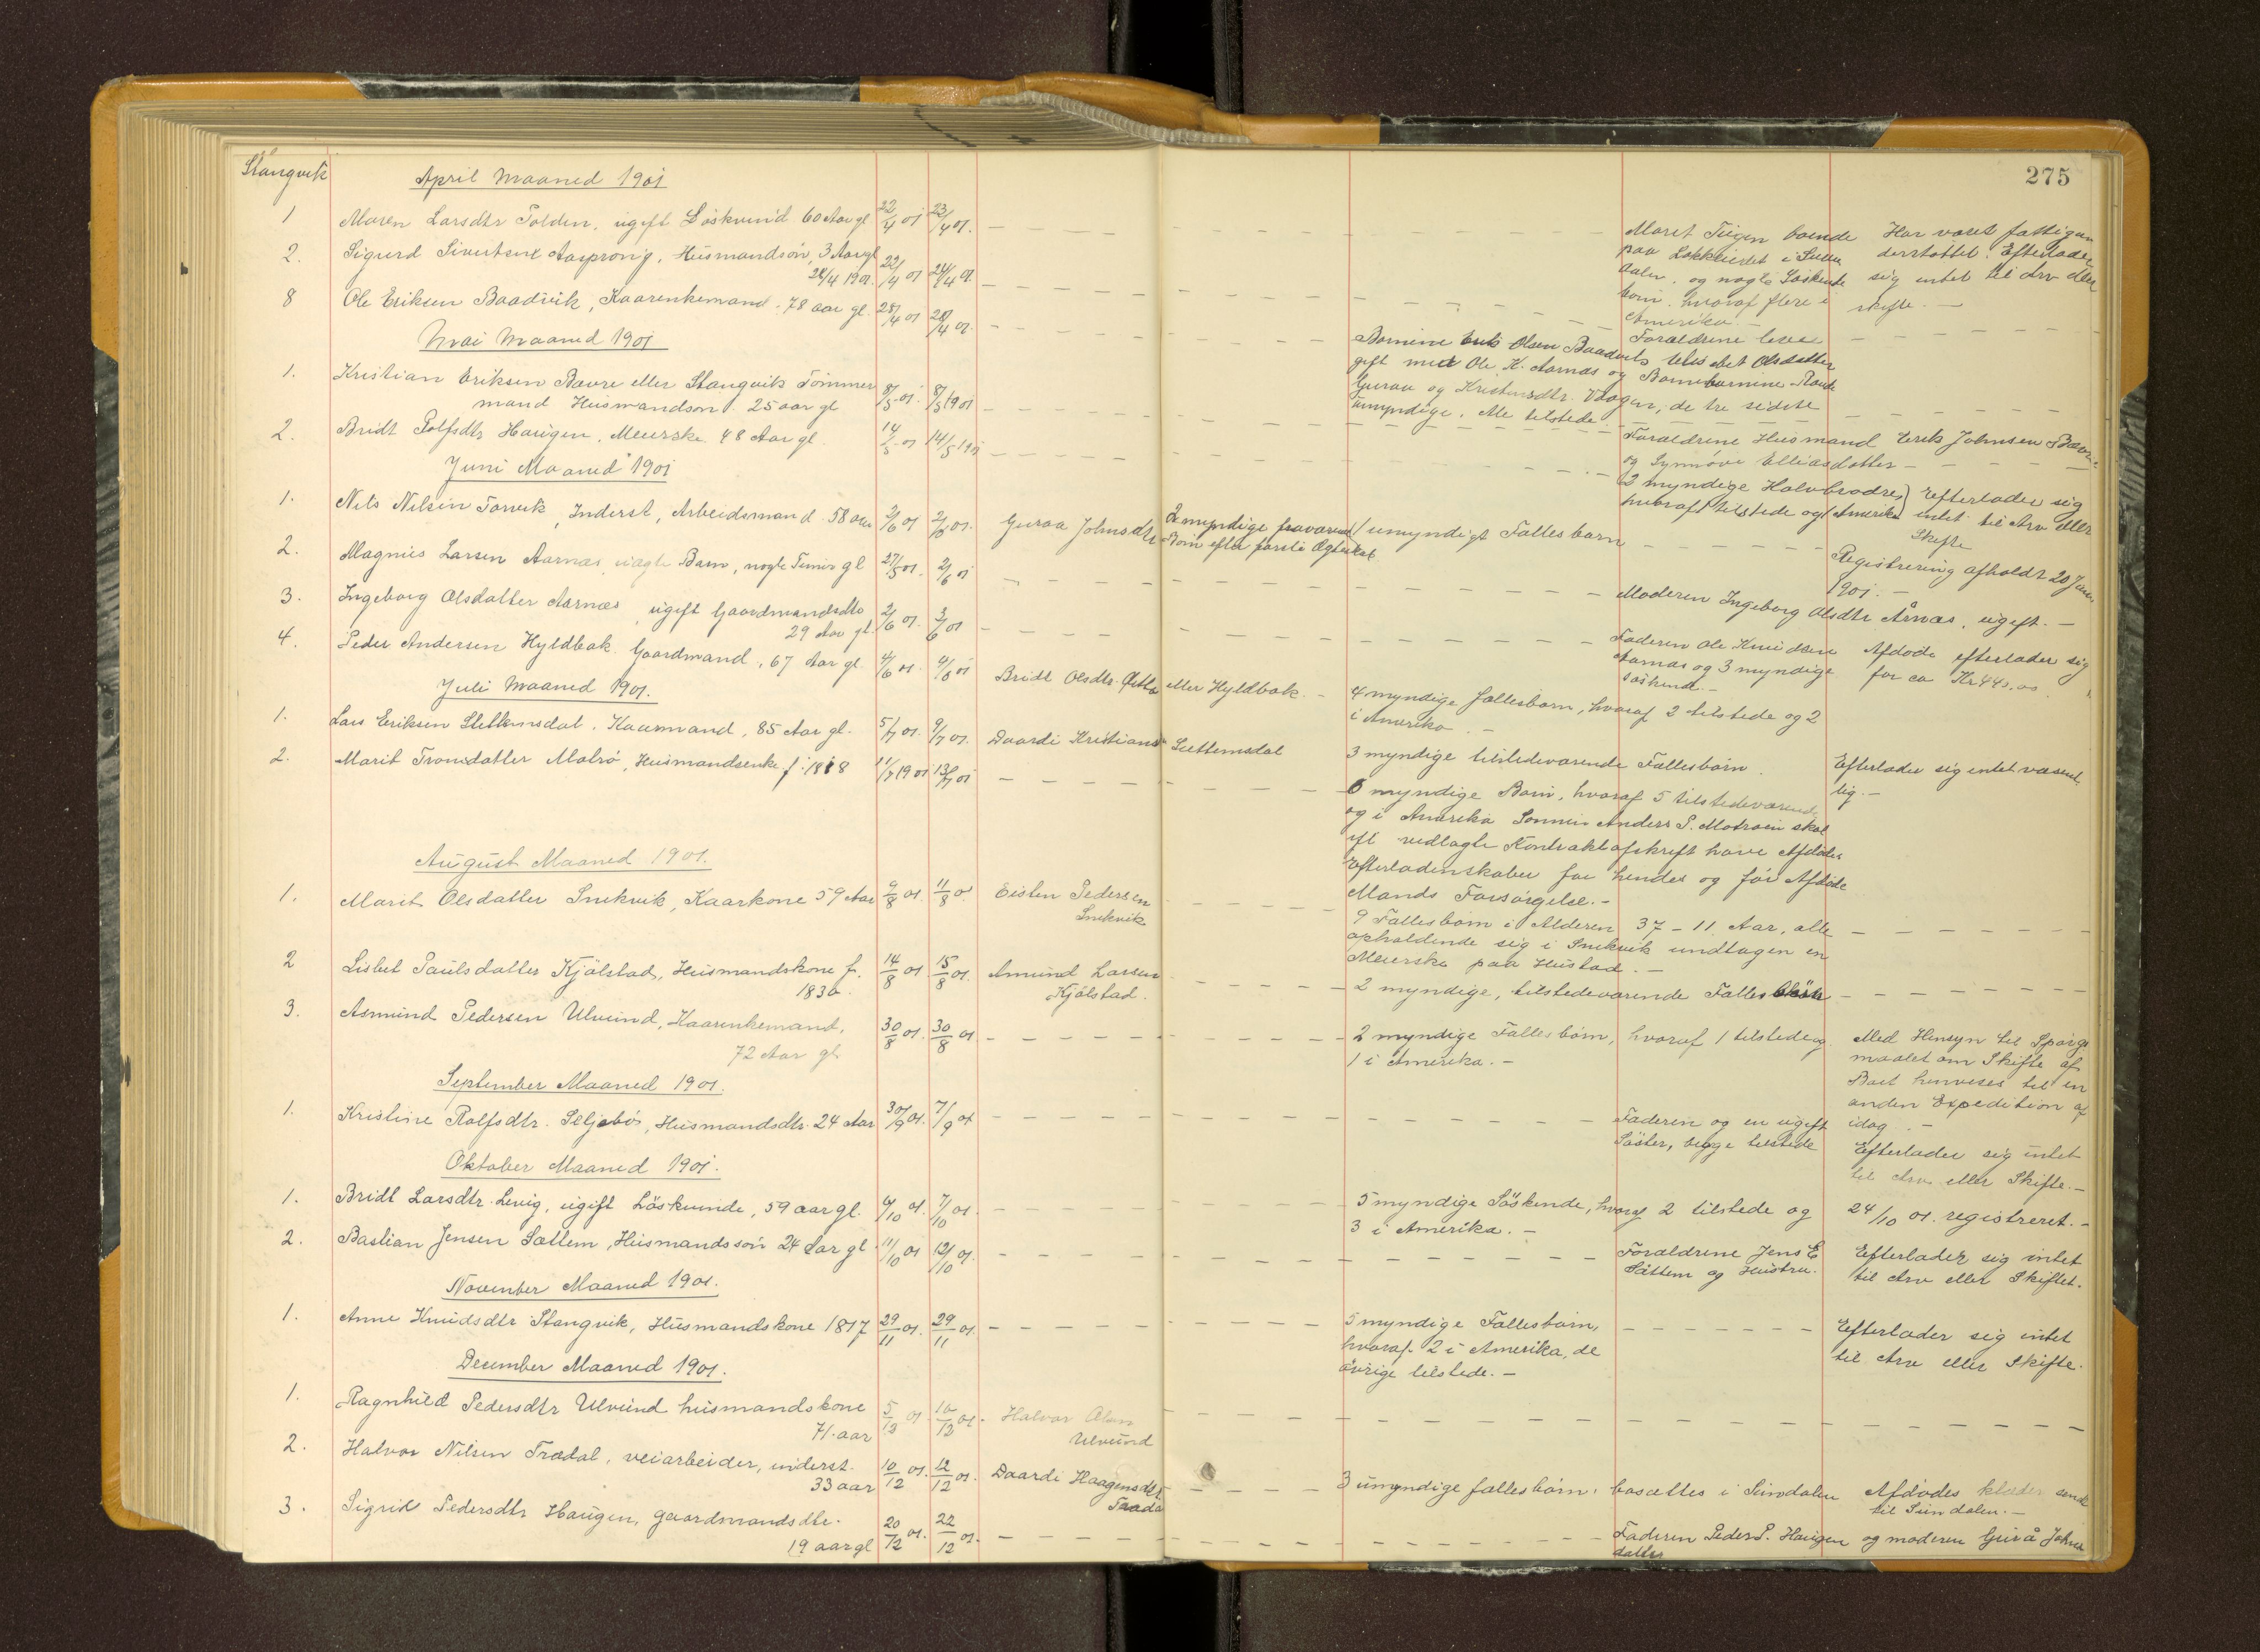 275
Stangvik
April Maaned 1901
1 Maren Larsdtr Polden, ugift Löskvind 60 Aar gl 22/4 01 23/4 01. Maret Tiigen boende Har været fattigun
paa Løkkeiedet i Surna derstøttet. Efterlader
dalen, og nogle Söskende sig intet til Arv eller
born, hvoraf flere i skifte. —
Amerika. —
2. Sigurd Sivertsen Aasprong, Husmandsön, 3 Aar gl
22/4 01 24/4 01 Forældrene lever
8 Ole Eriksen Baadvik, Kaarenkemand. 78 aar gl. 28/4 01 28/4 01.
Börnene Erik Olsen Baadvik, Olsdatter
gift med Ole K. Aarnæs og Barnebørnene
Guraa og Kristensdtr. Vaagen, de tre sidste
umyndige. Alle tilstede.
Mai Maaned 1901
1. Kristian Eriksen Bævre eller Stangvik Tömmer
mand Husmandson. 25 aar gl 8/5 01. 8/5 1901
Forældrene Husmand Erik Johnsen Bævre
og Synnöve Elliasdatter —
2. Bridt Rolfsdtr Haugen, Meierske. 48 Aar gl. 14/5 01 14/5 1901
2 myndige Halvbrødre, Efterlader sig
hvoraf 1 tilstede og 1 Amerika intet til Arv eller
Skifte
Juni Maaned 1901
1. Nils Nilsen Torvik, Inderst, Arbeidsmand. 58 aar 2/6 01 2/6 01. Guraa Johnsdtr 2 myndige fraværende 1 umyndigt Fællesbarn
Börn efter første Ægteskab.
Registrering afholdt 20 Juni
1901. —
2. Magnus Larsen Aarnæs, uægte Barn, nogle Timer gl 27/5 01. 2/6 01
Moderen Ingeborg Olsdtr Årnæs, ugift. —
3. Ingeborg Olsdatter Aarnæs, ugift Gaardmandsdtr
29 Aar gl. 2/6 01. 3/6 01
Faderen Ole Knudsen Afdöde efterlader sig
Aarnæs og 3 myndige for ca Kr 440,00
søskende. —
4. Peder Andersen Hyldbak. Gaardmand, 67 Aar gl. 4/6 01. 4/6 01 Bridt Olsdtr. eller Hyldbak. — 4 myndige fællesbørn, hvoraf 2 tilstede og 2
i Amerika. —
Juli Maaned 1901.
1. Lars Eriksen Slettemsdal, Kaarmand, 85 Aar gl. 5/7 01. 9/7 01. Daardi Kristians Settemsdal 3 myndige tilstedeværende Fællesbörn. Efterlader sig intet væsent
lig. —
2. Marit Tronsdatter Malrö, Husmandsenke f. 1818 11/7 1901 13/7 01
6 myndige Börn, hvoraf 5 tilstedeværende
og i Amerika Sönnen Anders P. Motroen skal
ift vedlagte Kontraktafskrift have Afdødes
Efterladenskaber for hendes og før Afdøde
Mands Forsørgelse. —
August Maaned 1901.
1. Marit Olsdatter Snekvik, Kaarkone 59 Aar 9/8 01. 11/8 01 Eislen Pedersen
Snekvik
9 Fællesbörn i Alderen 37 – 11 Aar, alle
opholdende sig i Snekvik undtagen en
Meierske paa Hustad. —
2 Lisbet Paulsdatter Kjölstad, Husmandskone f.
1830. 14/8 01. 15/8 01. Amund Larsen
Kjölstad.
2 myndige, tilstedeværende Fælles
3. Asmund Pedersen Ulvund, Kaarenkemand,
72 Aar gl. 30/8 01. 30/8 01
2 myndige Fællesbörn, hvoraf 1 tilstede og Med Hensyn til Spörgs
1 i Amerika. — maalet om Skifte af
Boet henvises til en
anden Expedition af
idag. —
September Maaned 1901.
1. Kristine Rolfsdtr. Seljebö, Husmandsdtr. 24 Aar 30/9 01. 7/9 01
Faderen og en ugift Efterlader sig intet
Söster, begge tilstede til Arv eller Skifte. —
Oktober Maaned 1901.
1. Bridt Larsdtr. Levig, ugift Löskvinde, 59 aar gl. 6/10 01. 7/10 01. 5 myndige Söskende, hvoraf 2 tilstede og 24/10 01. registreret. —
3 i Amerika. —
2. Bastian Jensen Sættem, Husmandssön 24 Aar gl 11/10 01 12/10 01. Forældrene Jens E Efterlader sig intet
Sättem og Hustru. til Arv eller Skiftet.
November Maaned 1901.
1. Anne Knudsdtr Stangvik, Husmandskone 1817 29/11 01. 29/11 01. 5 myndige Fællesbörn, Efterlader sig intet
hvoraf 2 i Amerika, de til Arv eller Skifte.
övrige tilstede. —
December Maaned 1901.
1. Ragnhild Pedersdtr Ulvund husmandskone
71. aar 5/12 01 10/12 01. Halvor Olsen
Ulvund
2. Halvor Nilsen Trædal, veiarbeider, inderst.
33 aar 10/12 01. 12/12 01. Daardi Haagensdtr
3 umyndige fællesbörn. bosættes i Sundalen Afdödes klæder sendt
til Sundalen. —
3. Sigrid Pedersdtr Haugen, gaardmandsdtr.
19 aar gl 20/12 01. 22/12 01.
Faderen Peder P. Haugen og moderen Gurå Johns
datter